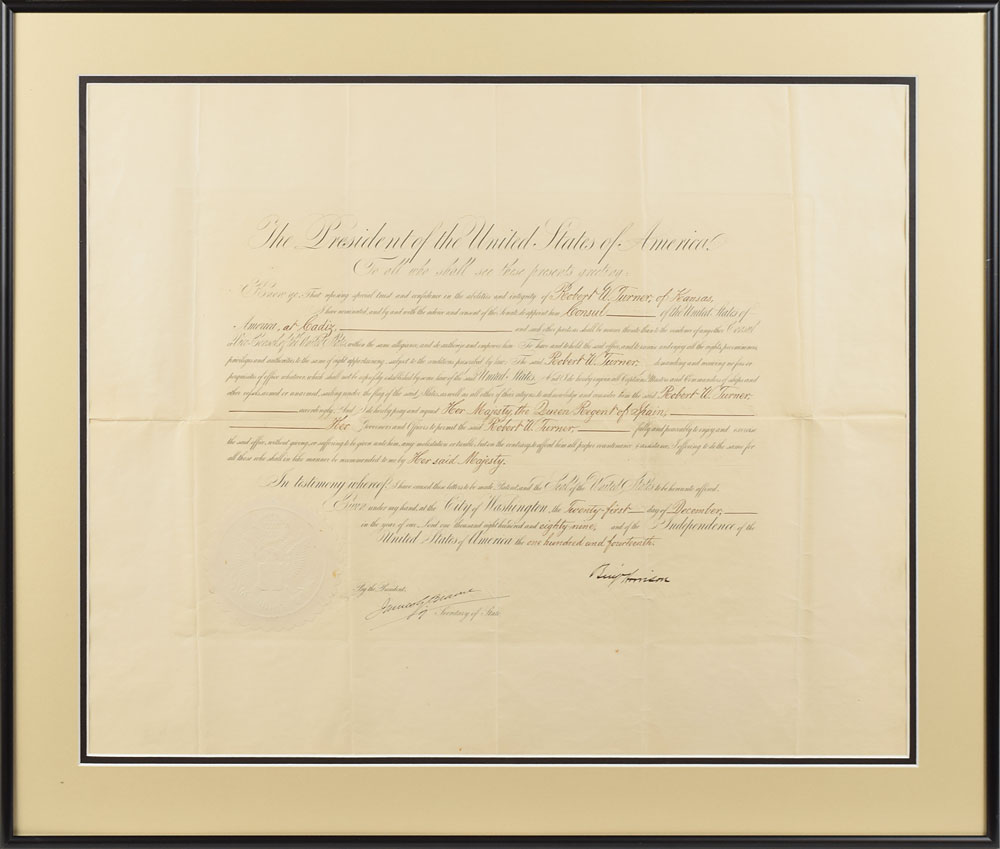 The President of the United States of America.
To all who shall see these presents greeting:
Know ye, That reposing special trust and confidence in the abilities and integrity of Robert W. Turner, of Kansas,
I have nominated, and by and with the advice and consent of the Senate do appoint him Consul of the United States of
America, at Cadiz, and such other parts as shall be nearer thereto than to the residence of any other Consul
or Vice Consul of the United States, within the same allegiance, and do authorize and empower him To have and to hold the said office, and to exercise and enjoy all the rights, preeminences,
privileges and authorities to the same of right appertaining, subject to the conditions prescribed by law: The said Robert W. Turner, demanding and receiving no fees or
perquisites of office whatever, which shall not be expressly established by some law of the said United States. And I do hereby enjoin all Captains, Masters and Commanders of ships and
other vessels, armed or unarmed, sailing under the flag of the said States, as well as all other of their citizens, to acknowledge and consider him the said Robert W. Turner,
accordingly. And I do hereby pray and request Her Majesty, the Queen Regent of Spain,
Her Governors and Officers to permit the said Robert W. Turner, fully and peaceably to enjoy and exercise
the said office, without giving, or suffering to be given unto him, any molestation or trouble, but on the contrary to afford him all proper countenance & assistance; I offering to do the same for
all those who shall in like manner be recommended to me by Her said Majesty.
In testimony whereof, I have caused these letters to be made Patent, and the Seal of the United States to be hereunto affixed.
Given under my hand, at the City of Washington, the Twenty-first day of December,
in the year of our Lord one thousand eight hundred and eighty-nine, and of the Independence of the
United States of America, the one hundred and fourteenth.
Benj Harrison
By the President:
James G. Blaine
Secretary of State.